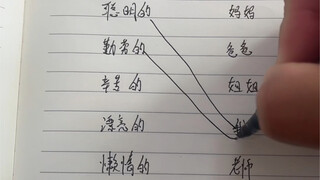 聪明的 妈妈
勤劳的 爸爸
辛苦的 姐姐
漂亮的
懒惰的 老师